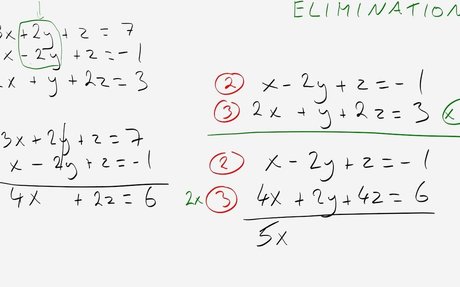 ELIMINATION
3x + 2y + z = 7
x - 2y + z = -1
2x + y + 2z = 3
3x + 2y + z = 7
x - 2y + z = -1
4x + 2z = 6
② x - 2y + z = -1
③ 2x + y + 2z = 3 x
② x - 2y + z = -1
2x ③ 4x + 2y + 4z = 6
5x